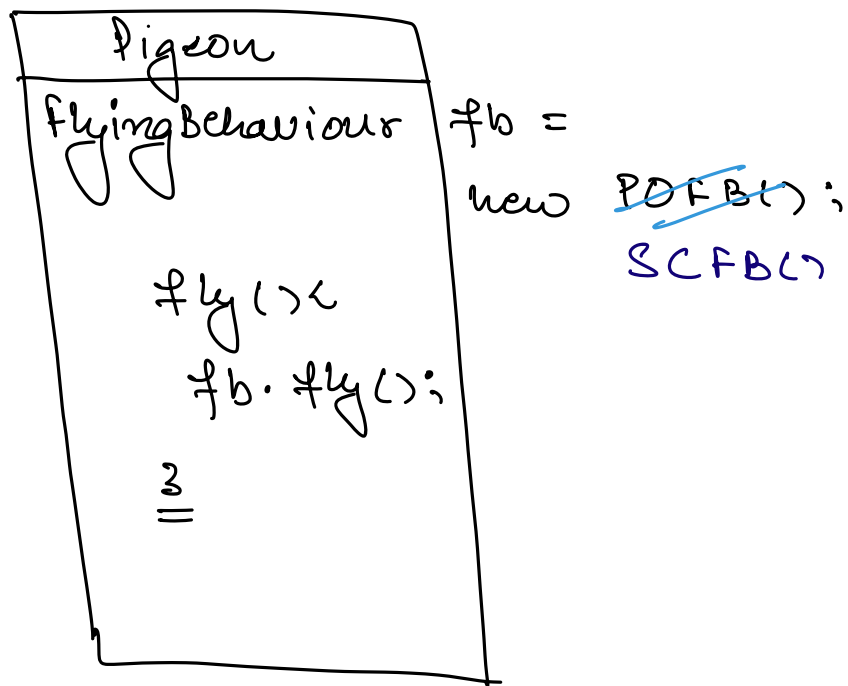 Pigeon
FlyingBehaviour fb =
new POFB();
SCFB()
fly(){
fb.fly();
}